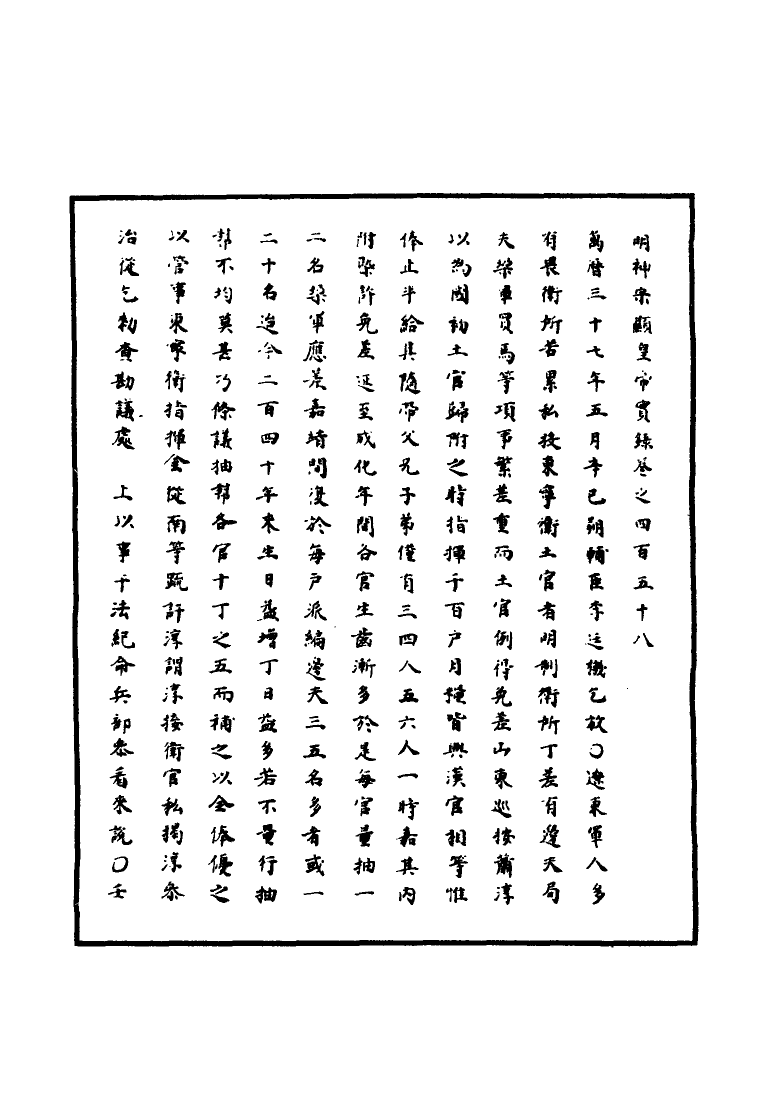 明神宗顯皇帝實錄卷之四百五十八
萬曆三十七年五月辛巳朔輔臣李廷機乞放○遼東軍人多
有畏衛所苦累私投東寧衛土官者明制衛所丁差有邊夫局
夫幇軍買馬等項事繁差重而土官例得免差山東巡按蕭淳
以為國初土官歸附之時指揮千百戶月糧皆與漢官相等惟
俸止半給其隨帶父兄子弟僅有三四人五六人一時嘉其內
附槩許免差延至成化年間各官生齒漸多於是每官量抽一
二名幇軍應差嘉靖間復於每戶派編邊夫三五名多者或一
二十名迨今二百四十年來生日益增丁日益多若不量行抽
幇不均莫甚乃條議抽幇各官十丁之五而補之以全俸優之
以管事東寧衛指揮金從南等疏訐淳謂淳接衛官私揭淳參
治從乞勑賣勘議處　上以事干法紀命兵部參看來說○壬